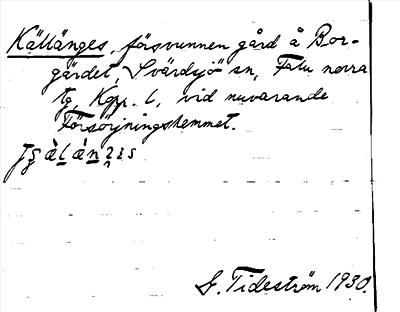 Källänges, försvunnen gård å Bor-
gärdet, Svärdsjö sn, Falu norra
tg, Kpr. l., vid nuvarande
Försörjningshemmet.
G. Tideström 1930.